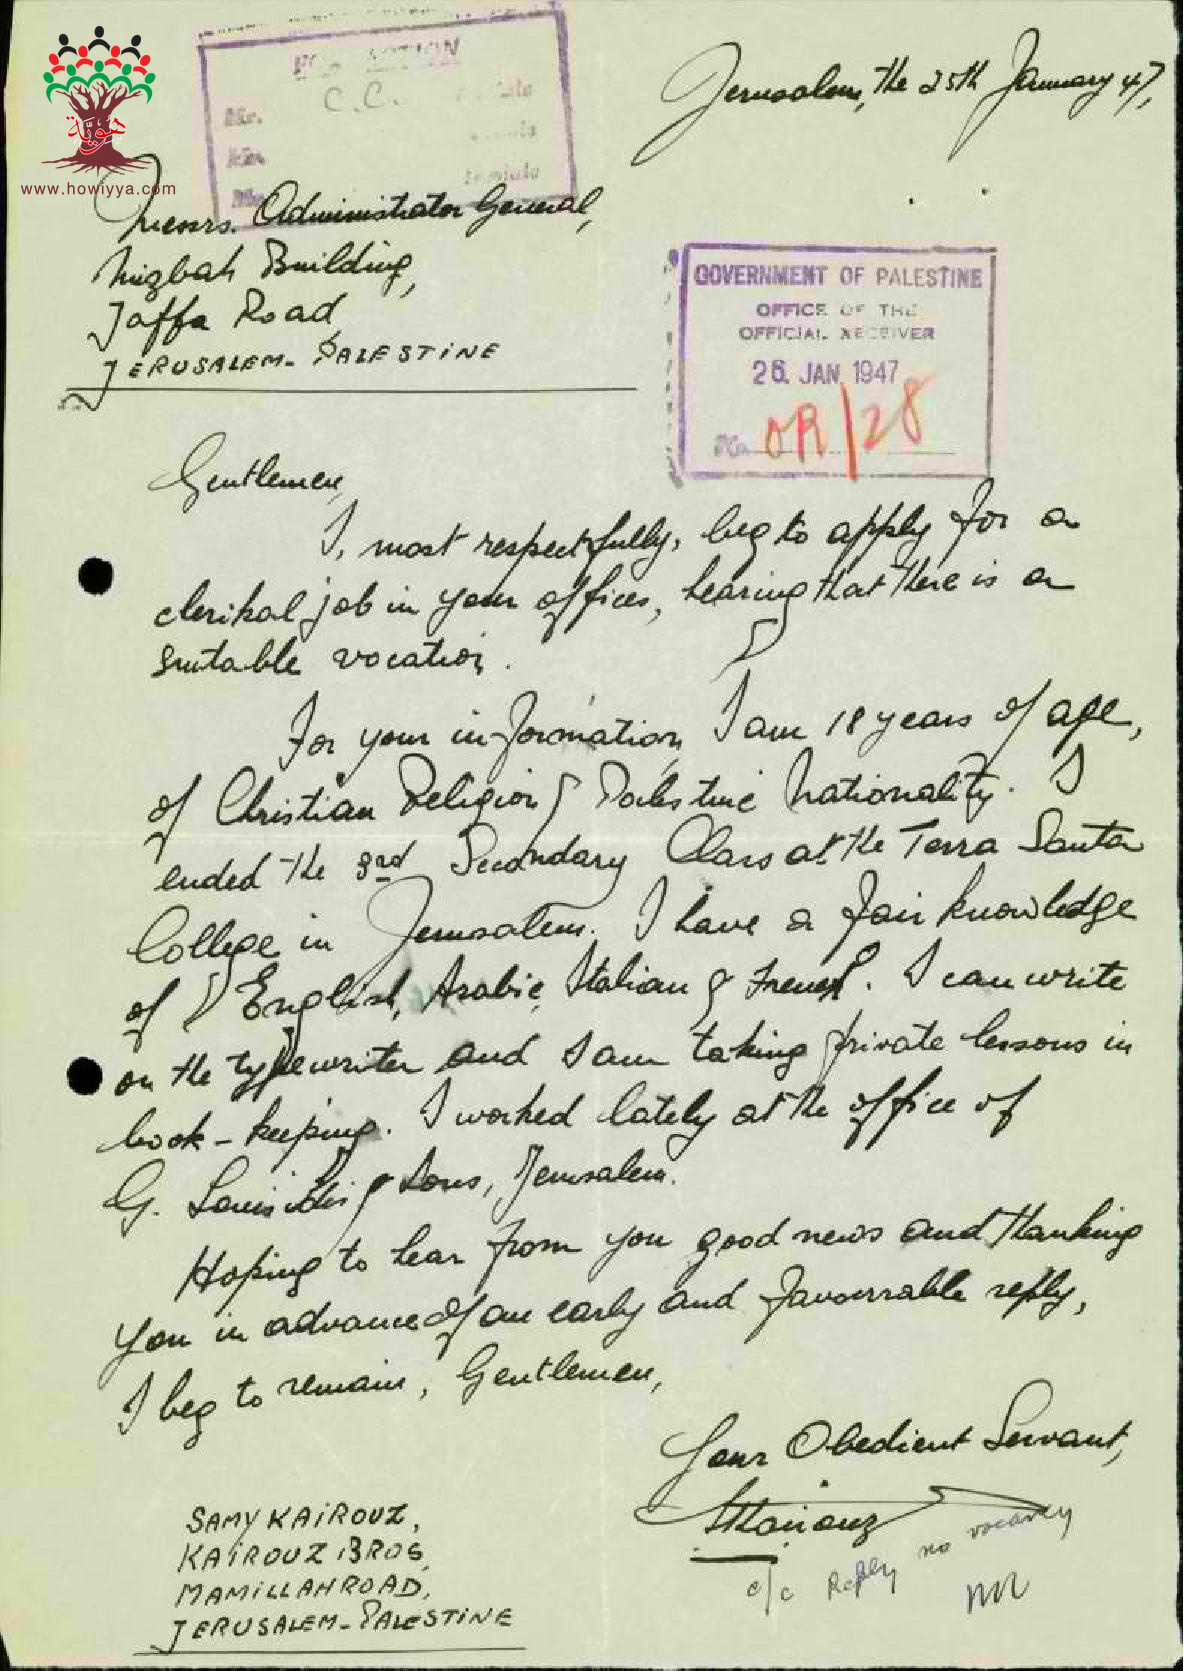 هويّة
www.howiyya.com
FOR ACTION
Mr. C.C.
Mr.
Jerusalem, the 25th January 47,
Messrs. Administrator General,
Mizbah Building,
Jaffa Road,
JERUSALEM-PALESTINE
GOVERNMENT OF PALESTINE
OFFICE OF THE
OFFICIAL RECEIVER
26. JAN 1947
No OR/28
Gentlemen,
I, most respectfully, beg to apply for a
clerikal job in your offices, hearing that there is a
suitable vocation.
For your information, I am 18 years of age,
of Christian Religion & Palestine Nationality. I
ended the 3rd Secondary Class at the Terra Santa
College in Jerusalem. I have a fair knowledge
of English, Arabic, Italian & French. I can write
on the typewriter and I am taking private lessons in
book-keeping. I worked lately at the office of
G. Louisidis & Sons, Jerusalem.
Hoping to hear from you good news and thanking
you in advance of an early and favourrable reply,
I beg to remain, Gentlemen,
Your Obedient Servant,
SKairouz
SAMY KAIROUZ,
KAIROUZ BROS,
MAMILLAH ROAD,
JERUSALEM-PALESTINE
c/c Reply no vocancy